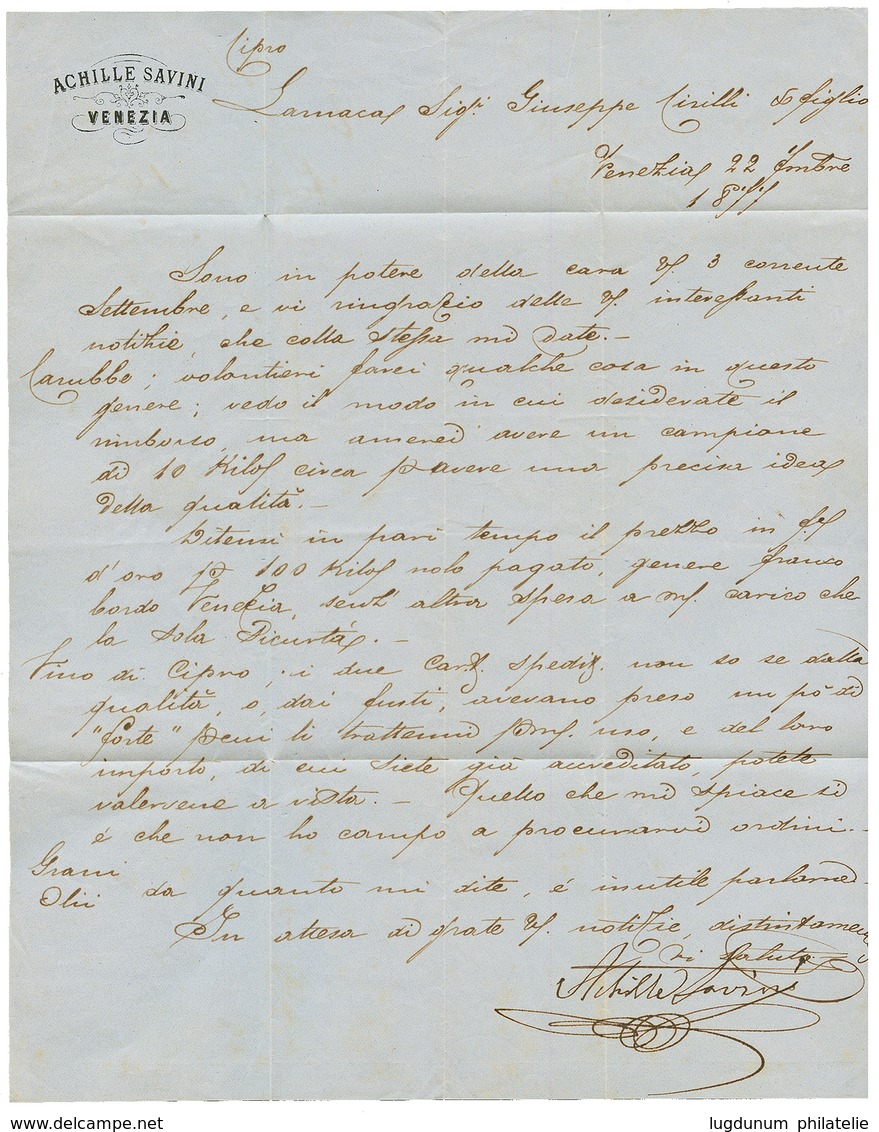 ACHILLE SAVINI
VENEZIA
Cipro
Larnaca Sigri Giuseppe Cirilli & figlio
Venezia 22 7mbre
1877
Sono in potere della cara Vs. 3 corrente
Settembre, e vi ringrazio delle Vs. interessanti
notizie, che colla stessa mi date. –
Carubbe; volontieri farei qualche cosa in questo
genere; vedo il modo in cui desiderate il
rimborso, ma amerei avere un campione
di 10 Kilos circa p avere una precisa idea
della qualità. –
Ditemi in pari tempo il prezzo in
d'oro p 100 Kilos nolo pagato, genere franco
bordo Venezia, senz' altra spesa a m/ carico che
la sola Sicurtà. –
Vino di Cipro; i due Cart. spedit. non so se dalla
qualità, o, dai fusti, avevano preso un pò di
"forte" p cui li trattenni p m/ uso, e del loro
importo, di cui siete già accreditato, potete
valervene a vista. – Quello che mi spiace si
é che non ho campo a procurarvi ordini. –
Grani
Olii da quanto mi dite, é inutile parlarne. –
In attesa di grate Vs. notizie, distintamente
vi saluto
Achille Savini
lugdunum philatelie